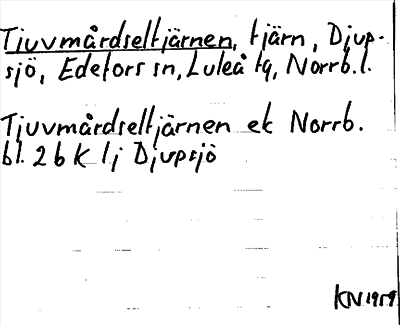 Tjuvmårdseltjärnen, tjärn, Djup-
sjö, Edefors sn, Luleå tg, Norrb.l.
Tjuvmårdseltjärnen ek Norrb.
bl. 2 b K l j Djupsjö
KN 1959